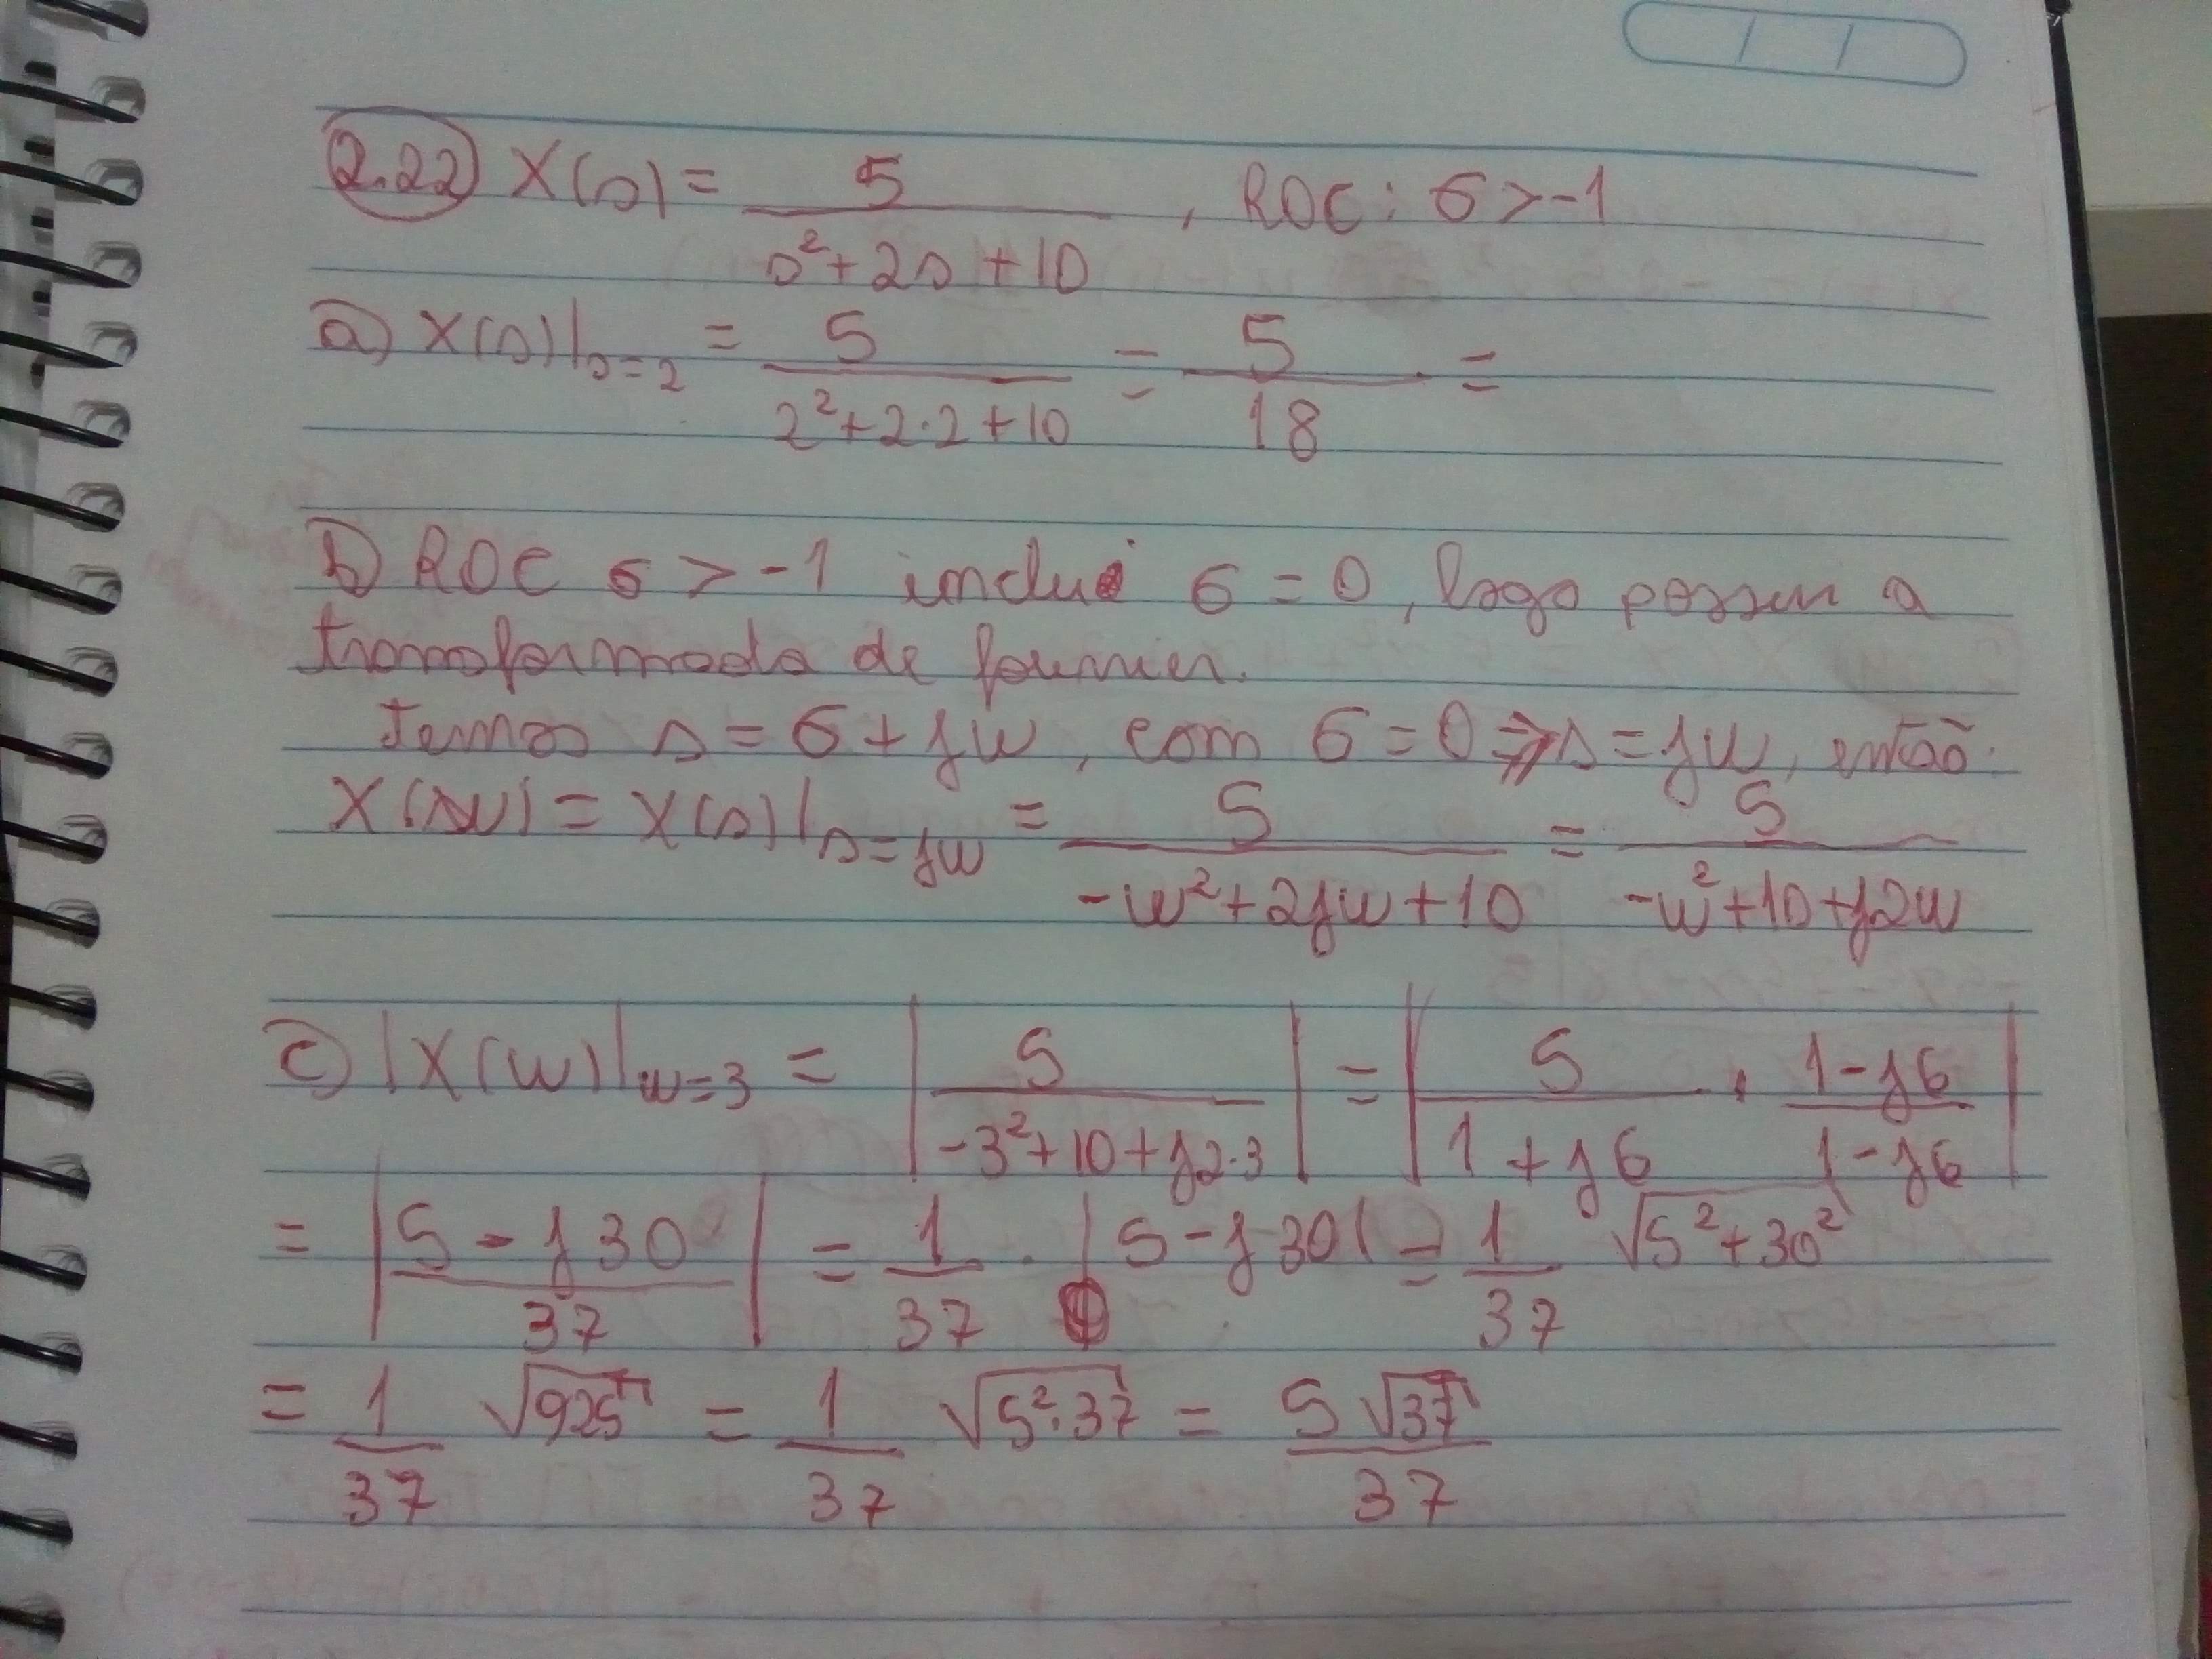 2.22) X(s) = 5/(s²+2s+10) , ROC: σ > -1
a) X(s)|s=2 = 5/(2²+2·2+10) = 5/18 =
b) ROC σ > -1 inclui σ = 0, logo possui a
transformada de fourier.
Temos s = σ + jw, com σ = 0 ⇒ s = jw, então
X(w) = X(s)|s=jw = 5/(-w²+2jw+10) = 5/(-w²+10+j2w)
c) |X(w)|w=3 = |5/(-3²+10+j2·3)| = |5/(1+j6) · (1-j6)/(1-j6)|
= |(5-j30)/37| = 1/37 · |5-j30| = 1/37 √(5²+30²)
= 1/37 √925 = 1/37 √(5²·37) = 5√37/37